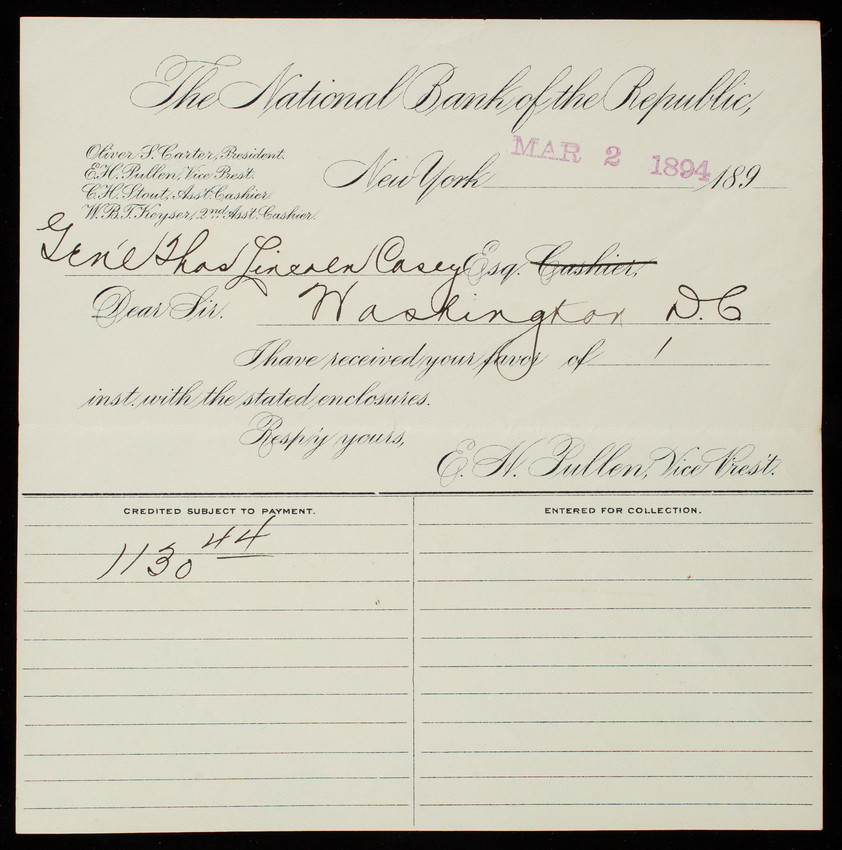 The National Bank of the Republic,
Oliver S. Carter, President.
E.H. Pullen, Vice Prest.
C.H. Stout, Ass't. Cashier.
W.B.T. Keyser, 2nd Asst. Cashier.
New York MAR 2 1894 189
Gen'l Thos Lincoln Casey Esq. Cashier,
Dear Sir. Washington D.C
I have received your favor of 1
inst. with the stated enclosures.
Resp'y yours,
E. H. Pullen, Vice Prest.
CREDITED SUBJECT TO PAYMENT.
ENTERED FOR COLLECTION.
1130 44